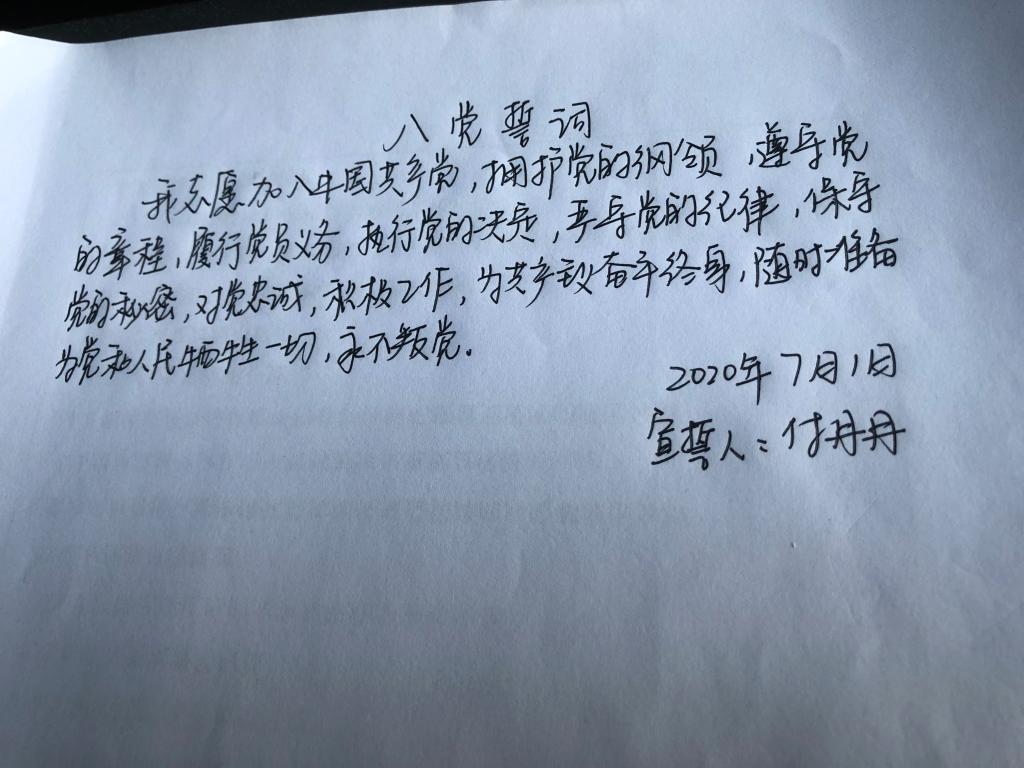 入党誓词
我志愿加入中国共产党,拥护党的纲领,遵守党
的章程,履行党员义务,执行党的决定,严守党的纪律,保守
党的秘密,对党忠诚,积极工作,为共产主义奋斗终身,随时准备
为党和人民牺牲一切,永不叛党。
2020年7月1日
宣誓人:付丹丹